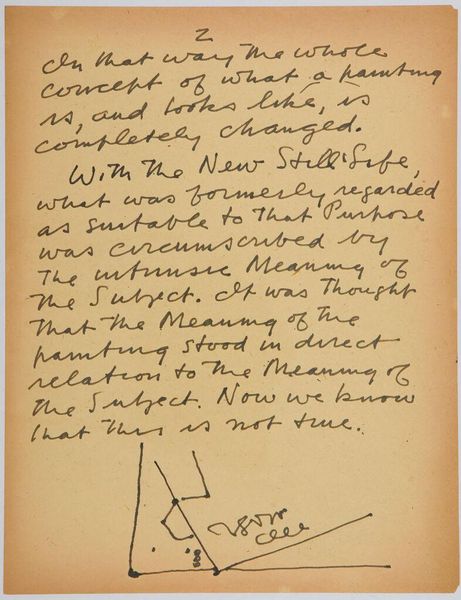 2
In that way the whole
concept of what a painting
is, and looks like, is
completely changed.
With the New Still Life,
what was formerly regarded
as suitable to that Purpose
was circumscribed by
the intrinsic Meaning of
the Subject. It was thought
that the Meaning of the
painting stood in direct
relation to the Meaning of
the Subject. Now we know
that this is not true.